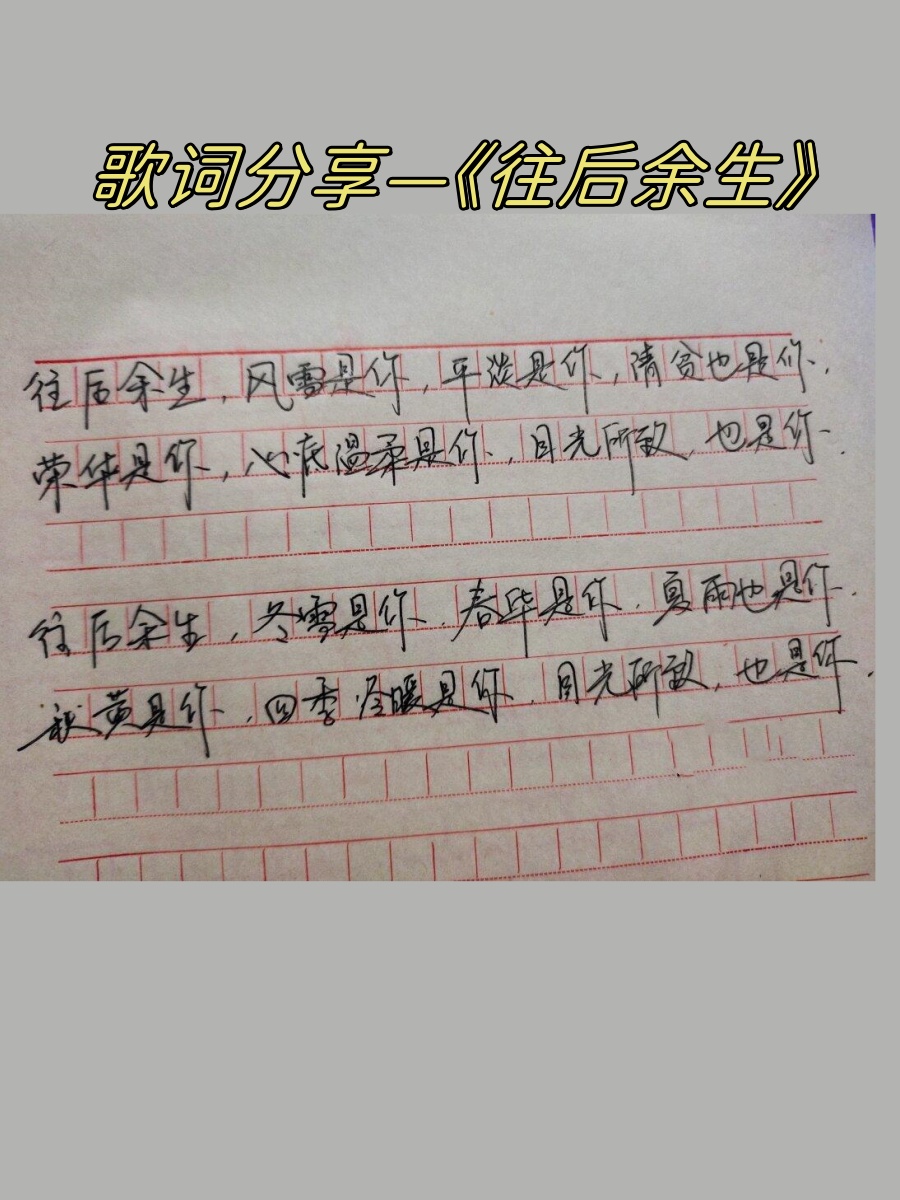 歌词分享—《往后余生》
往后余生，风雪是你，平淡是你，清贫也是你.
荣华是你，心底温柔是你，目光所致，也是你.
往后余生，冬雪是你.春华是你.夏雨也是你.
秋黄是你.四季冷暖是你.目光所致，也是你.